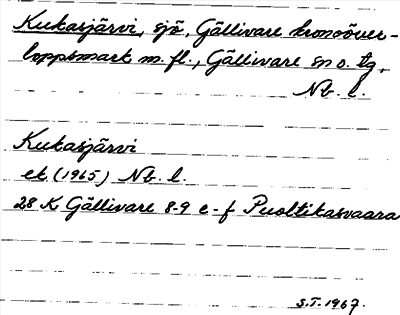 Kukasjärvi, sjö, Gällivare kronoöver-
loppsmark m.fl., Gällivare sn o. tg,
Nb. l.
Kukasjärvi
ek. (1965) Nb. l.
28 K Gällivare 8-9 e-f Puoltikasvaara
S.T. 1967.